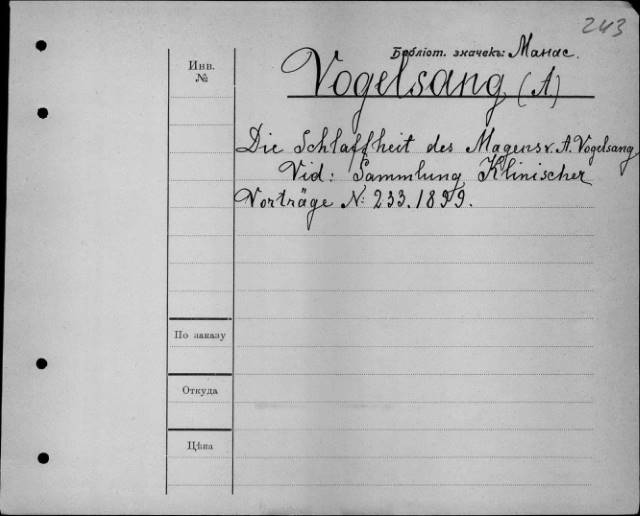 243
Библіот. значекъ: Манас.
Инв.
№
Vogelsang (A)
Die Schlaffheit des Magens v. A. Vogelsang
Vid: Sammlung Klinischer
Vorträge N: 233. 1899.
По заказу
Откуда
Цѣна